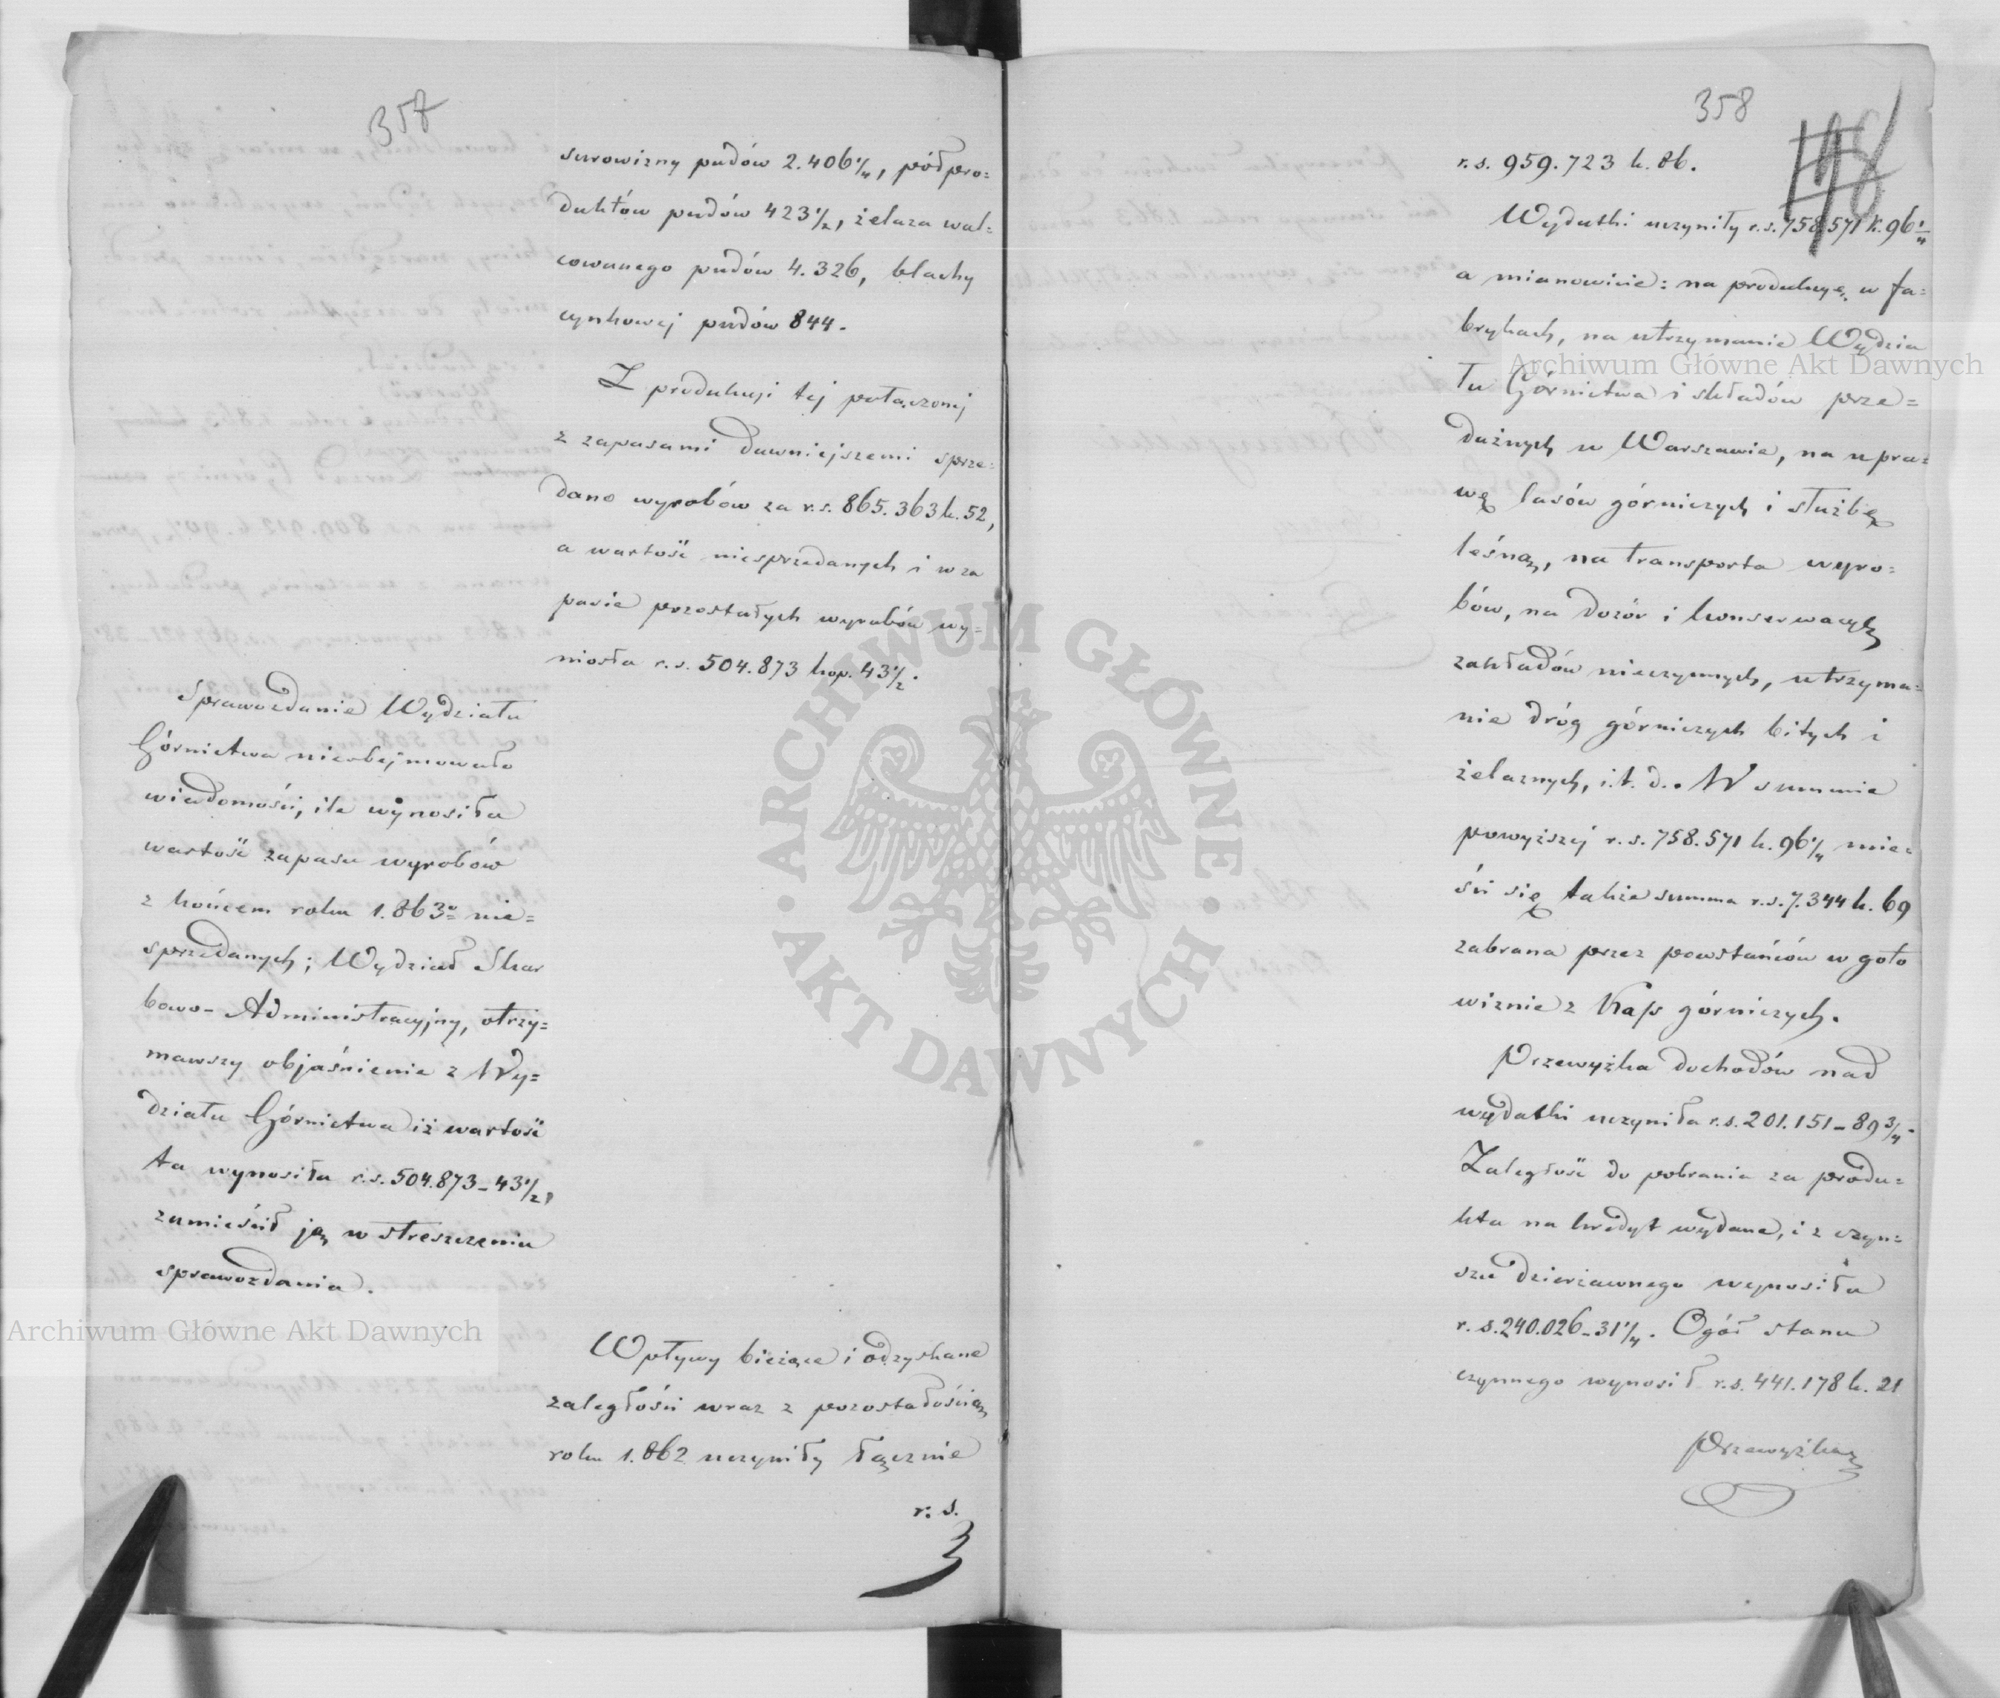 357
surowizny pudów 2.406 1/4, półpro=
duktów pudów 423 1/2, żelaza wal=
cowanego pudów 4.326, blachy
cynkowej pudów 844.
Z produkcji tej połączonej
z zapasami dawniejszemi sprze=
dano wyrobów za r.s. 865.363 k. 52,
a wartość niesprzedanych i w za
pasie pozostałych wyrobów wy=
niosła r.s. 504.873 kop. 43 1/2.
Sprawozdanie Wydziału
Górnictwa nieobejmowało
wiadomości, ile wynosiła
wartość zapasu wyrobów
z końcem roku 1.863o nie=
sprzedanych; Wydział Skar
bowo-Administracyjny, otrzy=
mawszy objaśnienie z Wy=
działu Górnictwa iż wartość
ta wynosiła r.s. 504.873-43 1/2,
zamieścił ją w streszczeniu
sprawozdania.
Wpływy bieżące i odzyskane
zaległości wraz z pozostałością
roku 1.862 uczyniły łącznie
r. s.
358
r.s. 959.723 k. 86.
Wydatki uczyniły r.s. 758.571 k. 96 1/4
a mianowicie: na produkcyę w fa=
brykach, na utrzymanie Wydzia
łu Górnictwa i składów prze=
dażnych w Warszawie, na upra=
wę lasów górniczych i służbę
leśną, na transporta wyro=
bów, na dozór i konserwacyą
zakładów nieczynnych, utrzyma=
nie dróg górniczych bitych i
żelaznych, i.t.d.. W summie
powyższej r.s. 758.571 k. 96 1/4 mie=
ści się także summa r.s. 7.344 k. 69
zabrana przez powstańców w goto
wiznie z Kass górniczych.
Przewyżka dochodów nad
wydatki uczyniła r.s. 201.151-89 3/4.
Zaległość do pobrania za produ=
kta na kredyt wydane, i z czyn=
szu dzierżawnego wynosiła
r.s. 240.026-31 1/4. Ogół stanu
czynnego wynosił r.s. 441.178 k. 21
Przewyżka
Archiwum Główne Akt Dawnych
Archiwum Główne Akt Dawnych
ARCHIWUM GŁÓWNE
AKT DAWNYCH